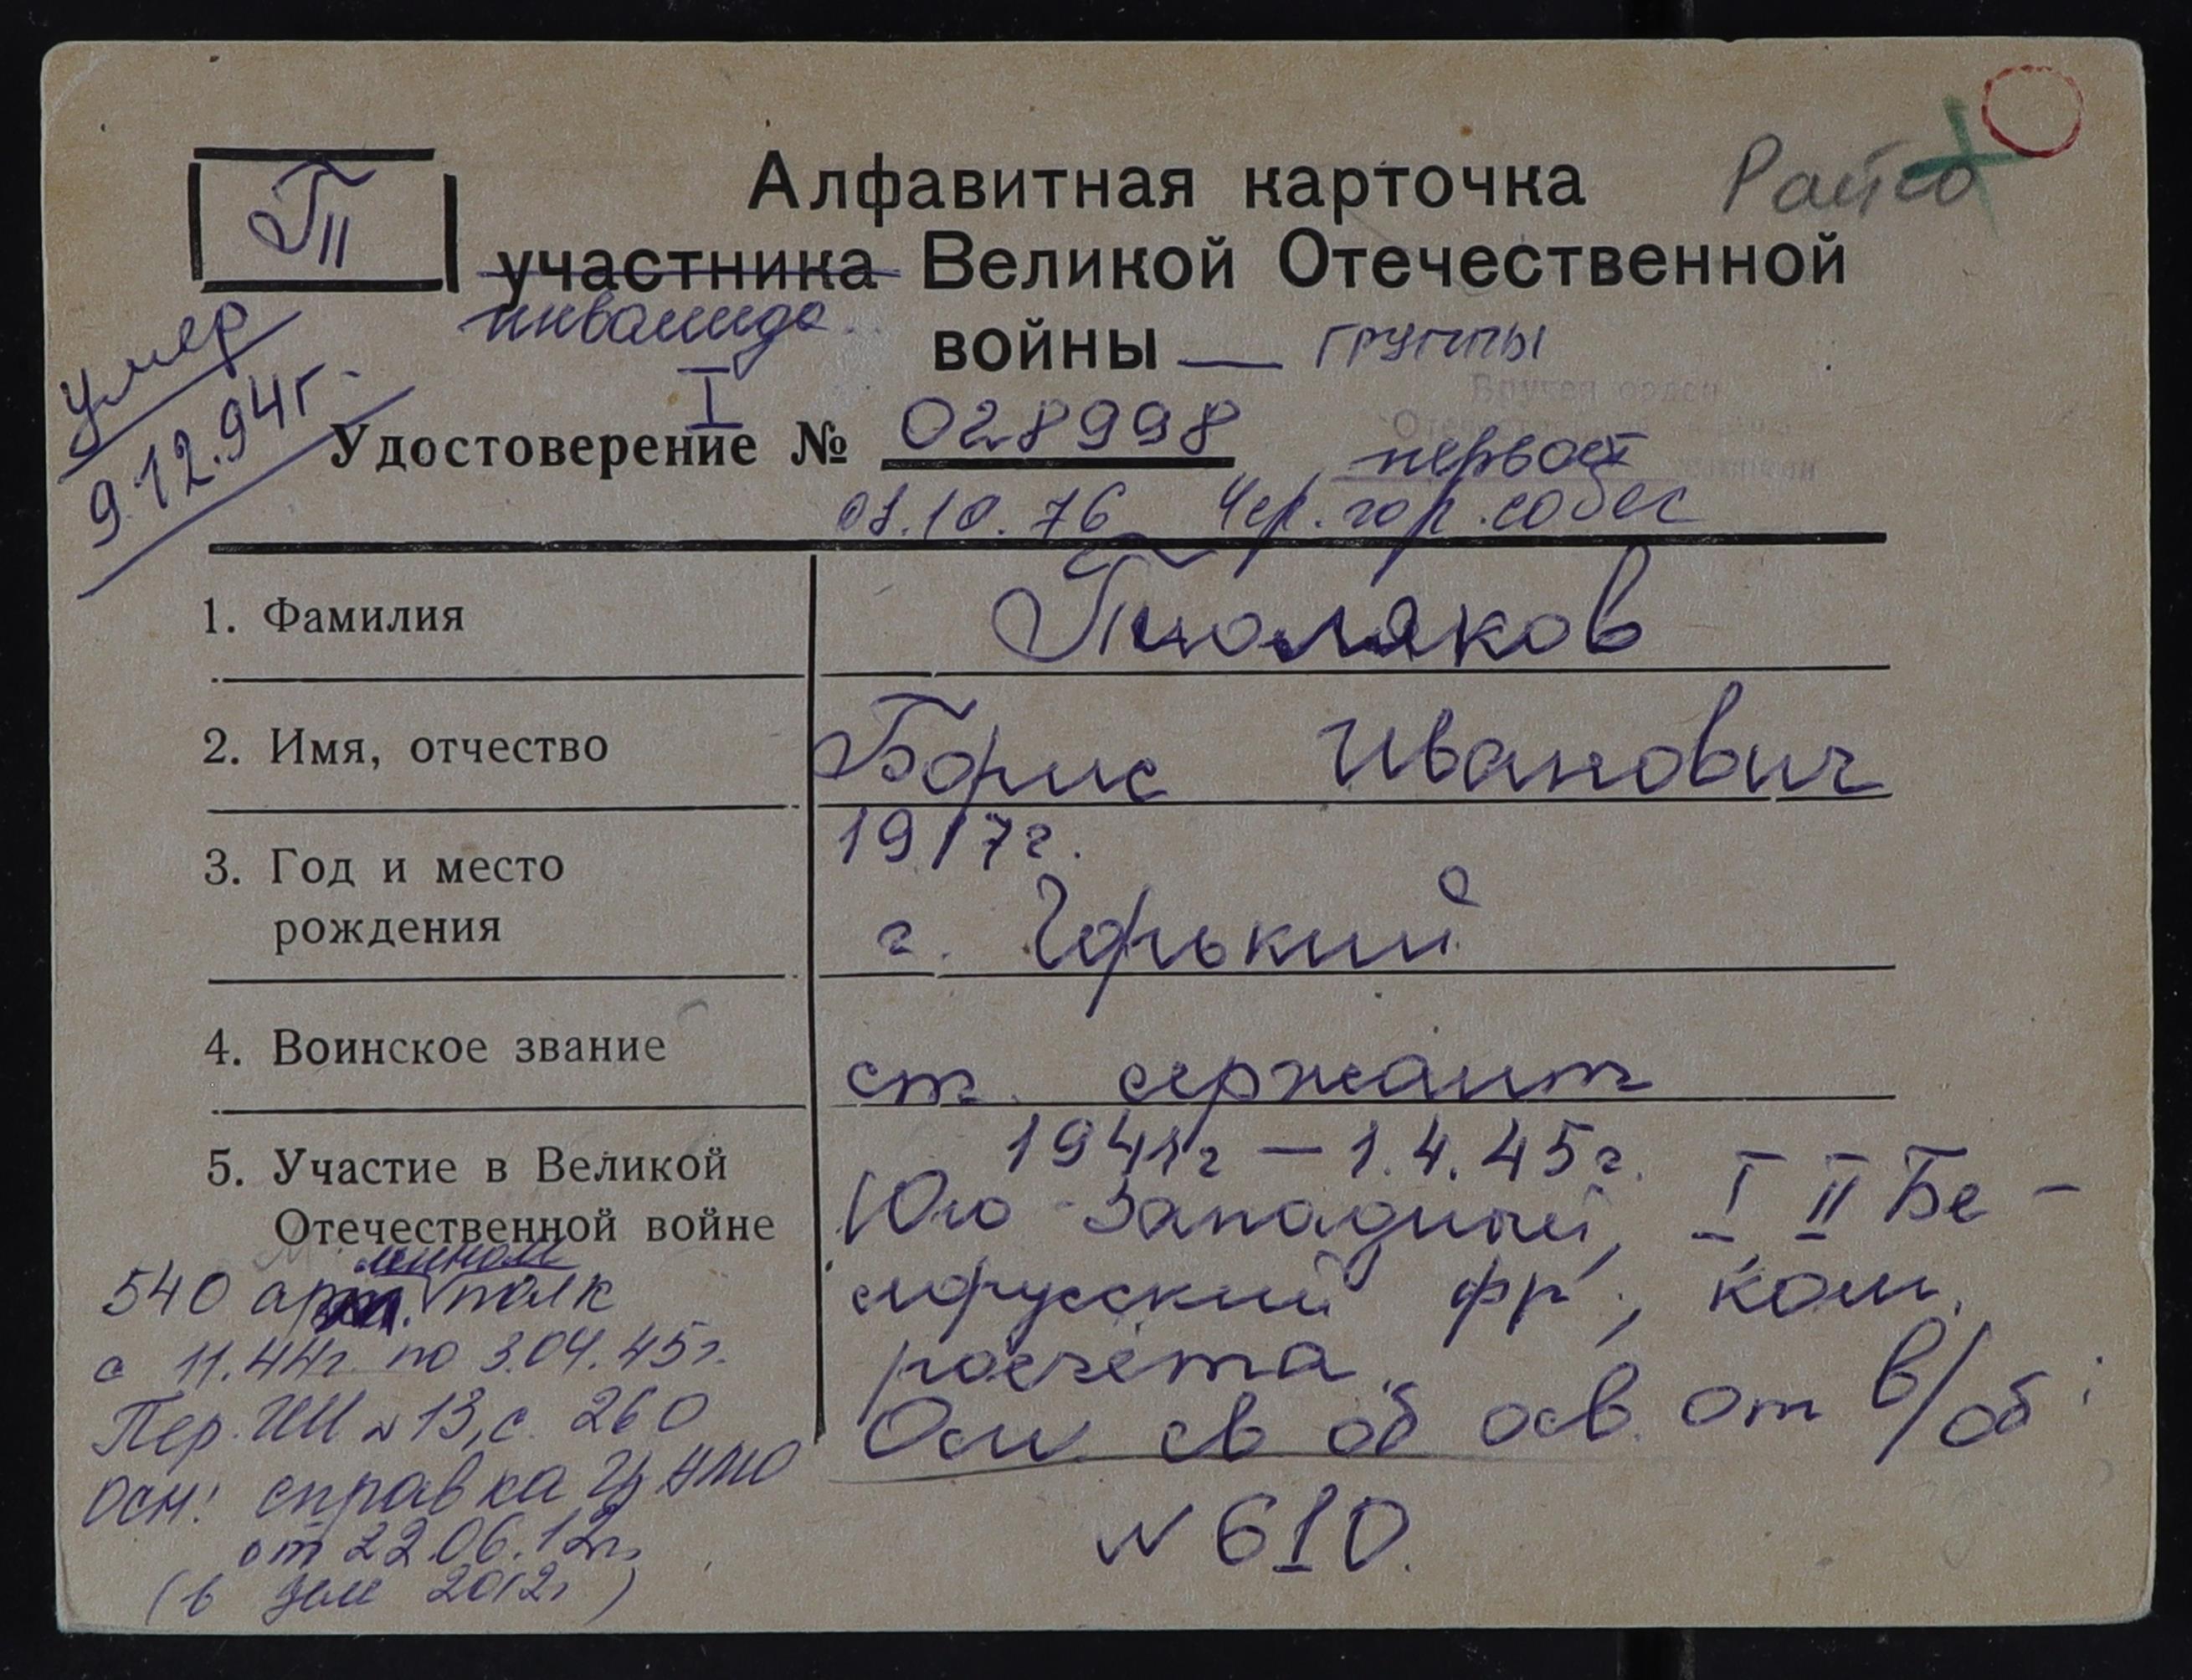 П
Алфавитная карточка
участника Великой Отечественной
инвалида войны — группы
I
умер
9.12.94г.
Удостоверение № 028998
первой
Вручен орден
08.10.76 Чер. гор. собес
1. Фамилия Тюляков
2. Имя, отчество Борис Иванович
3. Год и место рождения 1917г.
г. Горький
4. Воинское звание ст. сержант
5. Участие в Великой Отечественной войне 1941г – 1.4.45г.
Юго-Западный, I II Бе-
лорусский фр., ком.
расчёта
Осн. св об осв. от в/об
№ 610.
мином
540 арт. полк
с 11.44г. по 3.04.45г.
Пер. №13, с. 260
Осн: справка ЦАМО
от 22.06.12г.
(в деле 2012г)